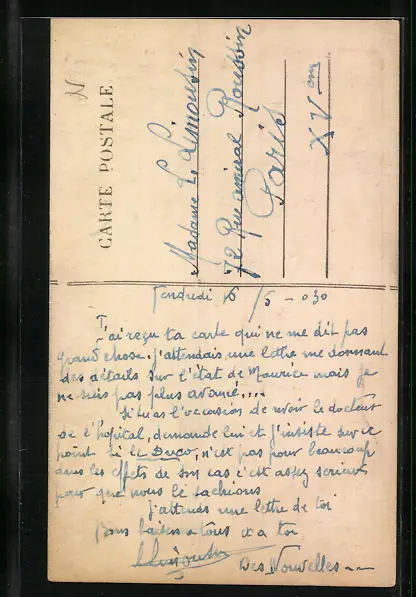 CARTE POSTALE
Madame L. Limousin
72 Rue amiral Roussin
Paris
XV em
Vendredi 16/5 - 030
J'ai reçu ta carte qui ne me dit pas
grand chose. J'attendais une lettre me donnant
des détails sur l'état de Maurice mais je
ne suis pas plus avancé....
Si tu as l'occasion de revoir le docteur
de l'hôpital, demande lui et j'insiste sur ce
point si le Duco, n'est pas pour beaucoup
dans les effets de son cas c'est assez serieux
pour que nous le sachions
J'attends une lettre de toi
Bons baisers a tous et a toi
Limousin
Des Nouvelles --